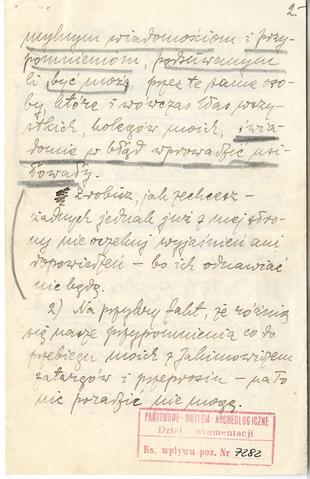 2-
mylnym wiadomościom i przy-
pomnieniom, podsuwanym
Ci, być może, przez te same oso-
by, które i wówczas Was wszy-
stkich, kolegów moich, świa-
domie w błąd wprowadzić usi-
łowały.
Zrobisz, jak zechcesz —
żadnych jednak już z mej stro-
ny nie oczekuj wyjaśnień ani
odpowiedzi — bo ich odnawiać
nie będę.
2) Na przykry fakt, że różnią
się nasze przypomnienia co do
przebiegu moich z Jakimowiczem
zatargów i przeprosin — na to
nic poradzić nie mogę.
PAŃSTWOWE MUZEUM ARCHEOLOGICZNE
Dział Dokumentacji
Ks. wpływu poz. Nr 7282